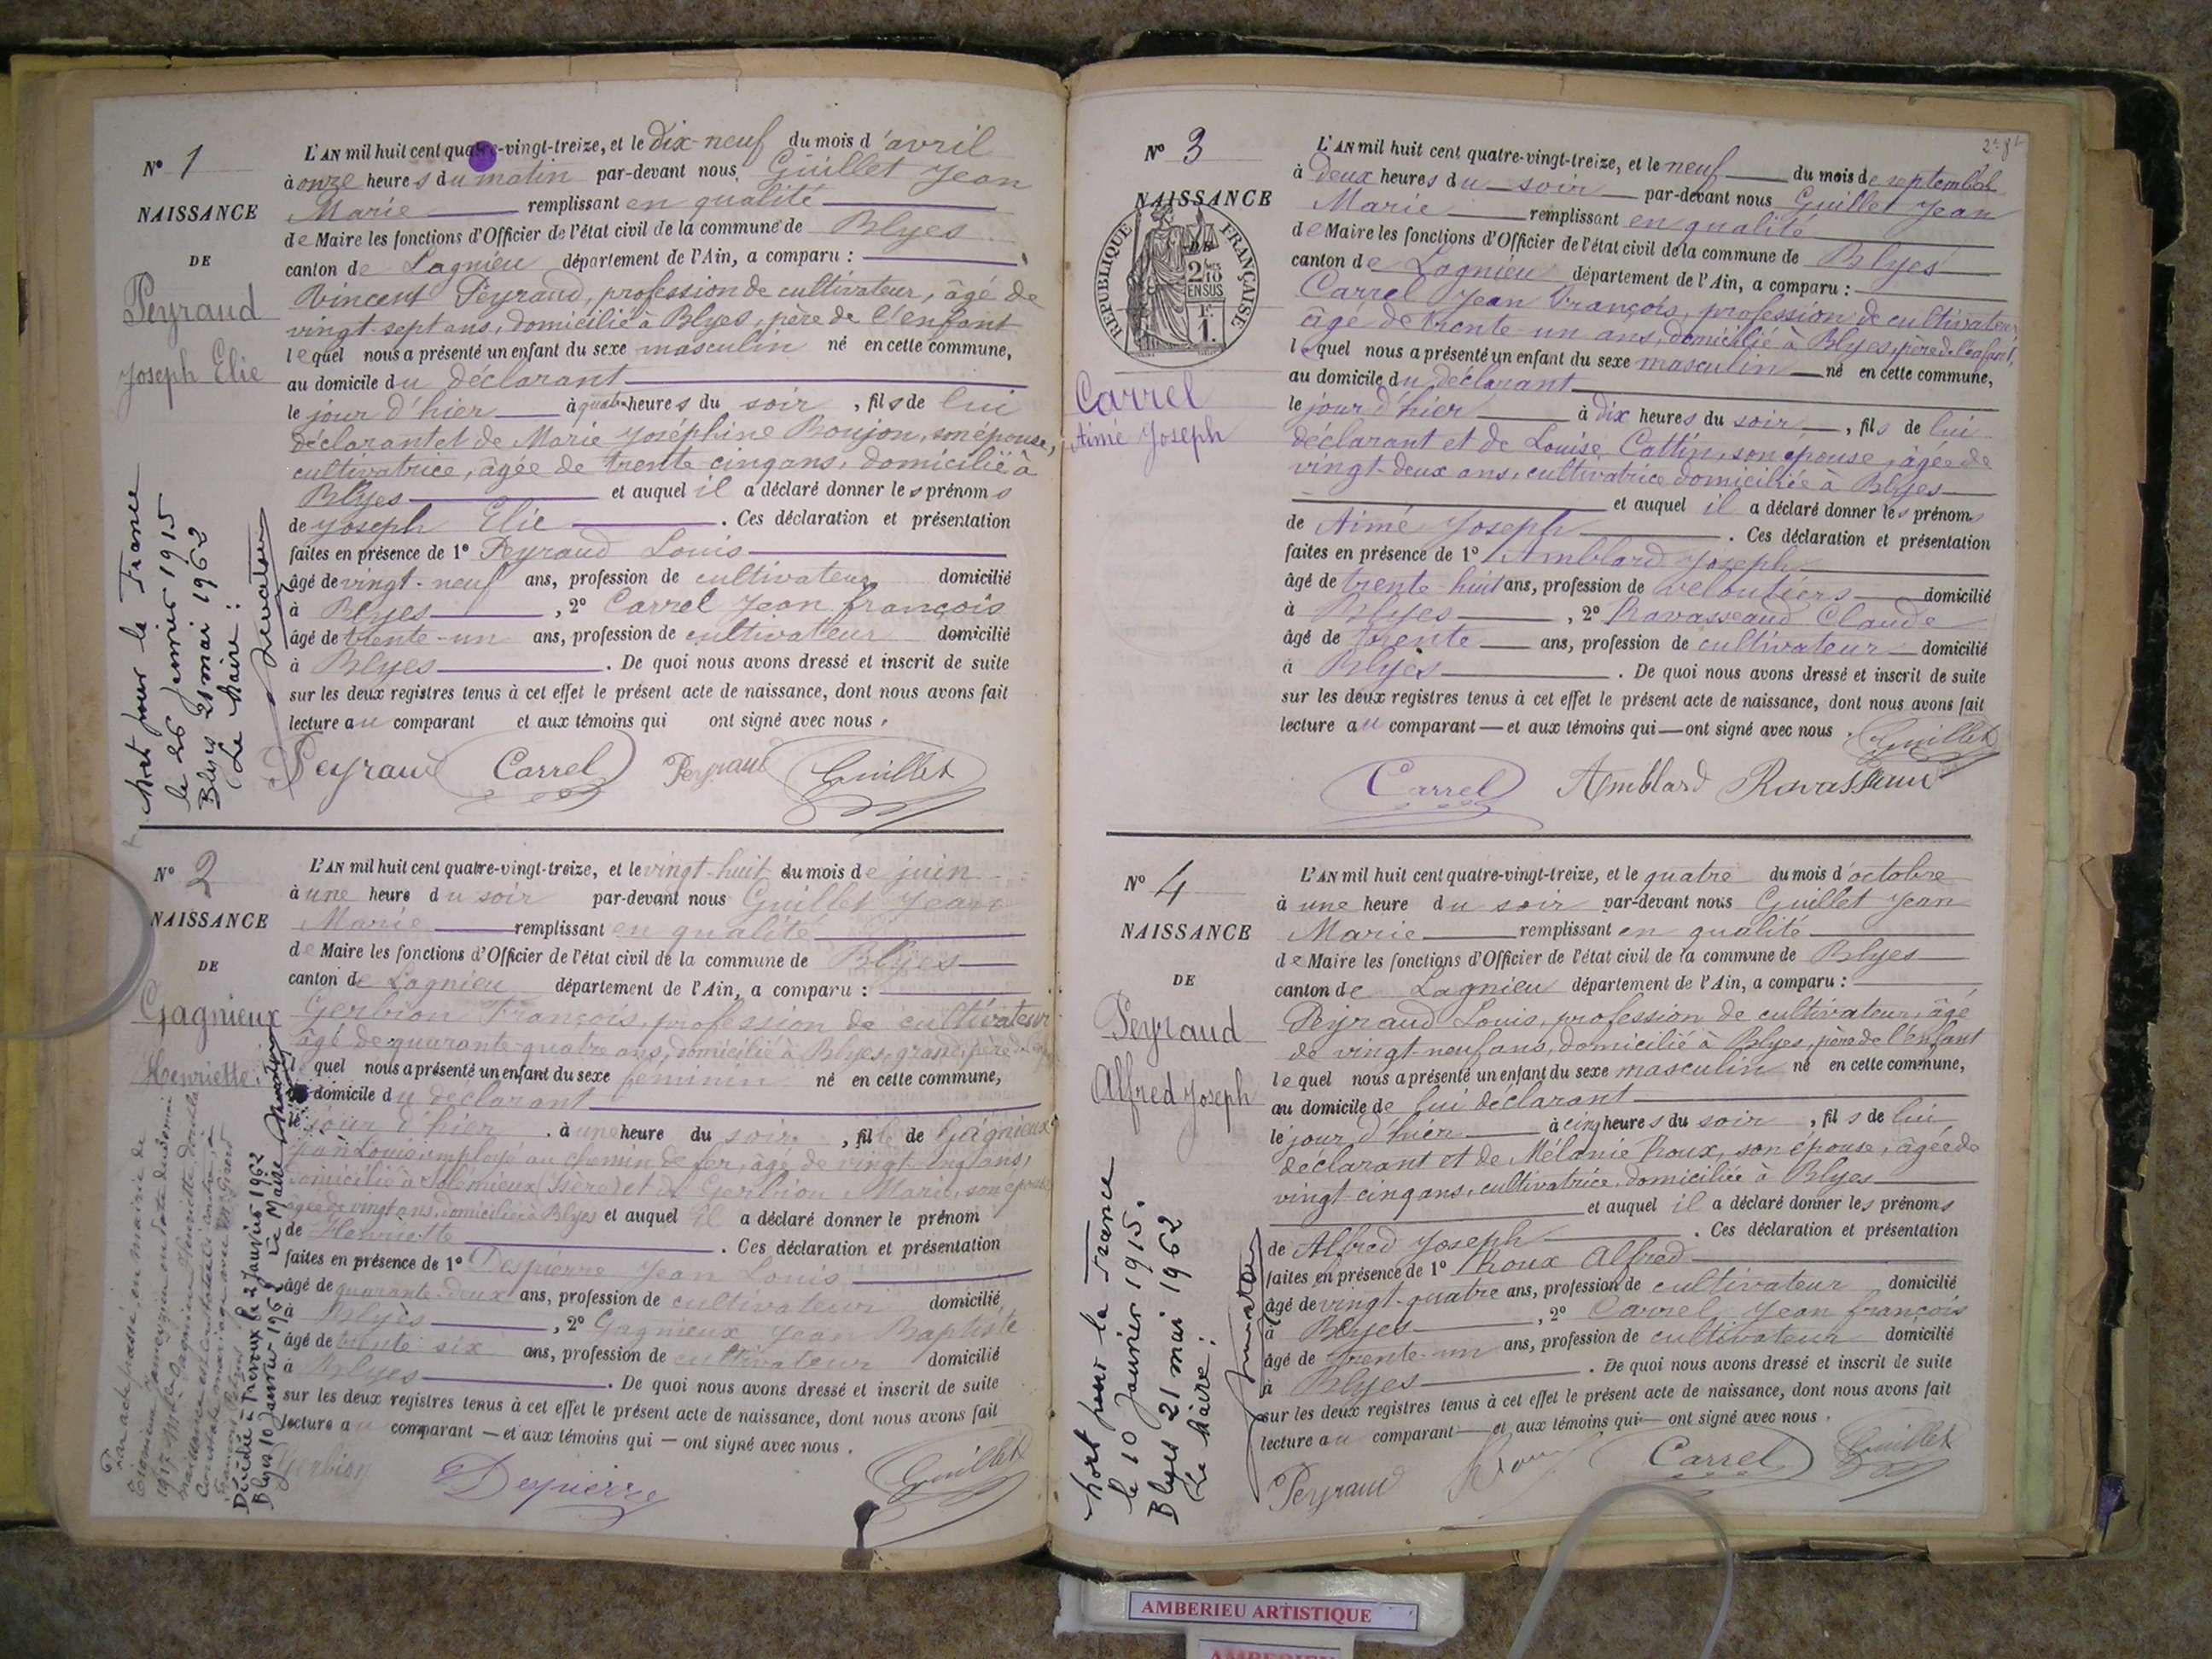 N° 1
NAISSANCE
DE
Peyraud
Joseph Elie
L'AN mil huit cent quatre-vingt-treize, et le dix-neuf du mois d'avril
à onze heures du matin par-devant nous Guillet Jean
Marie remplissant en qualité
de Maire les fonctions d'Officier de l'état civil de la commune de Blyes
canton de Lagnieu département de l'Ain, a comparu :
Vincent Peyraud, profession de cultivateur, âgé de
vingt-sept ans, domicilié à Blyes, père de l'enfant
lequel nous a présenté un enfant du sexe masculin né en cette commune,
au domicile du déclarant
le jour d'hier à quatre heures du soir, fils de lui
déclarant et de Marie Joséphine Boujon, son épouse,
cultivatrice, âgée de trente cinq ans, domicilié à
Blyes et auquel il a déclaré donner les prénoms
de Joseph Elie. Ces déclaration et présentation
faites en présence de 1° Peyraud Louis
âgé de vingt-neuf ans, profession de cultivateur domicilié
à Blyes, 2° Carrel Jean François
âgé de trente-un ans, profession de cultivateur domicilié
à Blyes. De quoi nous avons dressé et inscrit de suite
sur les deux registres tenus à cet effet le présent acte de naissance, dont nous avons fait
lecture au comparant et aux témoins qui ont signé avec nous.
Peyraud Carrel Peyraud Guillet
Mort pour la France
le 26 Janvier 1915
Blyes 21 mai 1962
Le Maire :
N° 2
NAISSANCE
DE
Gagnieux
Henriette
L'AN mil huit cent quatre-vingt-treize, et le vingt-huit du mois de juin
à une heure du soir par-devant nous Guillet Jean
Marie remplissant en qualité
de Maire les fonctions d'Officier de l'état civil de la commune de Blyes
canton de Lagnieu département de l'Ain, a comparu :
Gerbion François, profession de cultivateur
âgé de quarante-quatre ans, domicilié à Blyes, grand père
quel nous a présenté un enfant du sexe féminin né en cette commune,
domicile du déclarant
le jour d'hier à une heure du soir, fille de Gagnieux
Jean Louis, employé au chemin de fer, âgé de vingt-cinq ans,
domicilié à Solémieux (Isère) et de Gerbion Marie, son épouse
âgée de vingt ans, domiciliée à Blyes et auquel il a déclaré donner le prénom
de Henriette. Ces déclaration et présentation
faites en présence de 1° Depierre Jean Louis
âgé de quarante-deux ans, profession de cultivateur domicilié
à Blyes, 2° Gagnieux Jean Baptiste
âgé de trente six ans, profession de cultivateur domicilié
à Blyes. De quoi nous avons dressé et inscrit de suite
sur les deux registres tenus à cet effet le présent acte de naissance, dont nous avons fait
lecture au comparant — et aux témoins qui — ont signé avec nous.
Gerbion Depierre Guillet
Par acte en mairie de
Décédée à Trévoux le 2 Janvier 1962
Blyes 10 Janvier 1962 Le Maire
N° 3
NAISSANCE
DE
RÉPUBLIQUE FRANÇAISE
2/10 EN SUS
1
Carrel
Aimé Joseph
L'AN mil huit cent quatre-vingt-treize, et le neuf du mois de septembre
à deux heures du soir par-devant nous Guillet Jean
Marie remplissant en qualité
de Maire les fonctions d'Officier de l'état civil de la commune de Blyes
canton de Lagnieu département de l'Ain, a comparu :
Carrel Jean François, profession de cultivateur
âgé de trente-un ans, domicilié à Blyes, père de l'enfant,
lequel nous a présenté un enfant du sexe masculin né en cette commune,
au domicile du déclarant
le jour d'hier à dix heures du soir, fils de lui
déclarant et de Louise Cattin, son épouse, âgée de
vingt-deux ans, cultivatrice domiciliée à Blyes
et auquel il a déclaré donner les prénoms
de Aimé Joseph. Ces déclaration et présentation
faites en présence de 1° Amblard Joseph
âgé de trente-huit ans, profession de veloutiers domicilié
à Blyes, 2° Ravasseaud Claude
âgé de trente ans, profession de cultivateur domicilié
à Blyes. De quoi nous avons dressé et inscrit de suite
sur les deux registres tenus à cet effet le présent acte de naissance, dont nous avons fait
lecture au comparant — et aux témoins qui — ont signé avec nous.
Guillet
Carrel Amblard Ravasseaud
N° 4
NAISSANCE
DE
Peyraud
Alfred Joseph
L'AN mil huit cent quatre-vingt-treize, et le quatre du mois d'octobre
à une heure du soir par-devant nous Guillet Jean
Marie remplissant en qualité
de Maire les fonctions d'Officier de l'état civil de la commune de Blyes
canton de Lagnieu département de l'Ain, a comparu :
Peyraud Louis, profession de cultivateur, âgé
de vingt-neuf ans, domicilié à Blyes, père de l'enfant
lequel nous a présenté un enfant du sexe masculin né en cette commune,
au domicile de lui déclarant
le jour d'hier à cinq heures du soir, fils de lui
déclarant et de Mélanie Roux, son épouse, âgée de
vingt-cinq ans, cultivatrice, domiciliée à Blyes
et auquel il a déclaré donner les prénoms
de Alfred Joseph. Ces déclaration et présentation
faites en présence de 1° Roux Alfred
âgé de vingt-quatre ans, profession de cultivateur domicilié
à Blyes, 2° Carrel Jean François
âgé de trente-un ans, profession de cultivateur domicilié
à Blyes. De quoi nous avons dressé et inscrit de suite
sur les deux registres tenus à cet effet le présent acte de naissance, dont nous avons fait
lecture au comparant — et aux témoins qui — ont signé avec nous.
Peyraud Roux Carrel Guillet
Mort pour la France
le 10 Janvier 1915.
Blyes 21 mai 1962
Le Maire :
AMBERIEU ARTISTIQUE
AMBERIEU